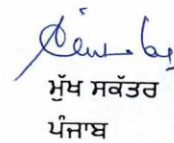 ਮੁੱਖ ਸਕੱਤਰ
ਪੰਜਾਬ